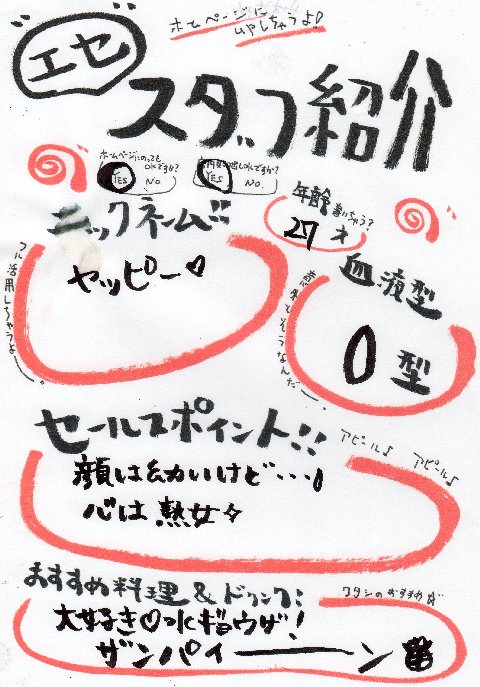 ホームページに
UPしちゃうよ!
エセ
スタッフ紹介
ホームページにのっても
OKですか?
YES NO
OKですか?
YES NO.
ニックネーム!!
年齢 言いちゃう?
27才
ヤッピー♡
フル活用しちゃうよー。
血液型
O型
セールスポイント!!
アピール♪ アピール♪
顔は幼いけど・・・!
心は熟女☆
おすすめ料理&ドリンク:
ワタシのおすすめ
大好き♡水ギョウザ!
ザンパイ――ン